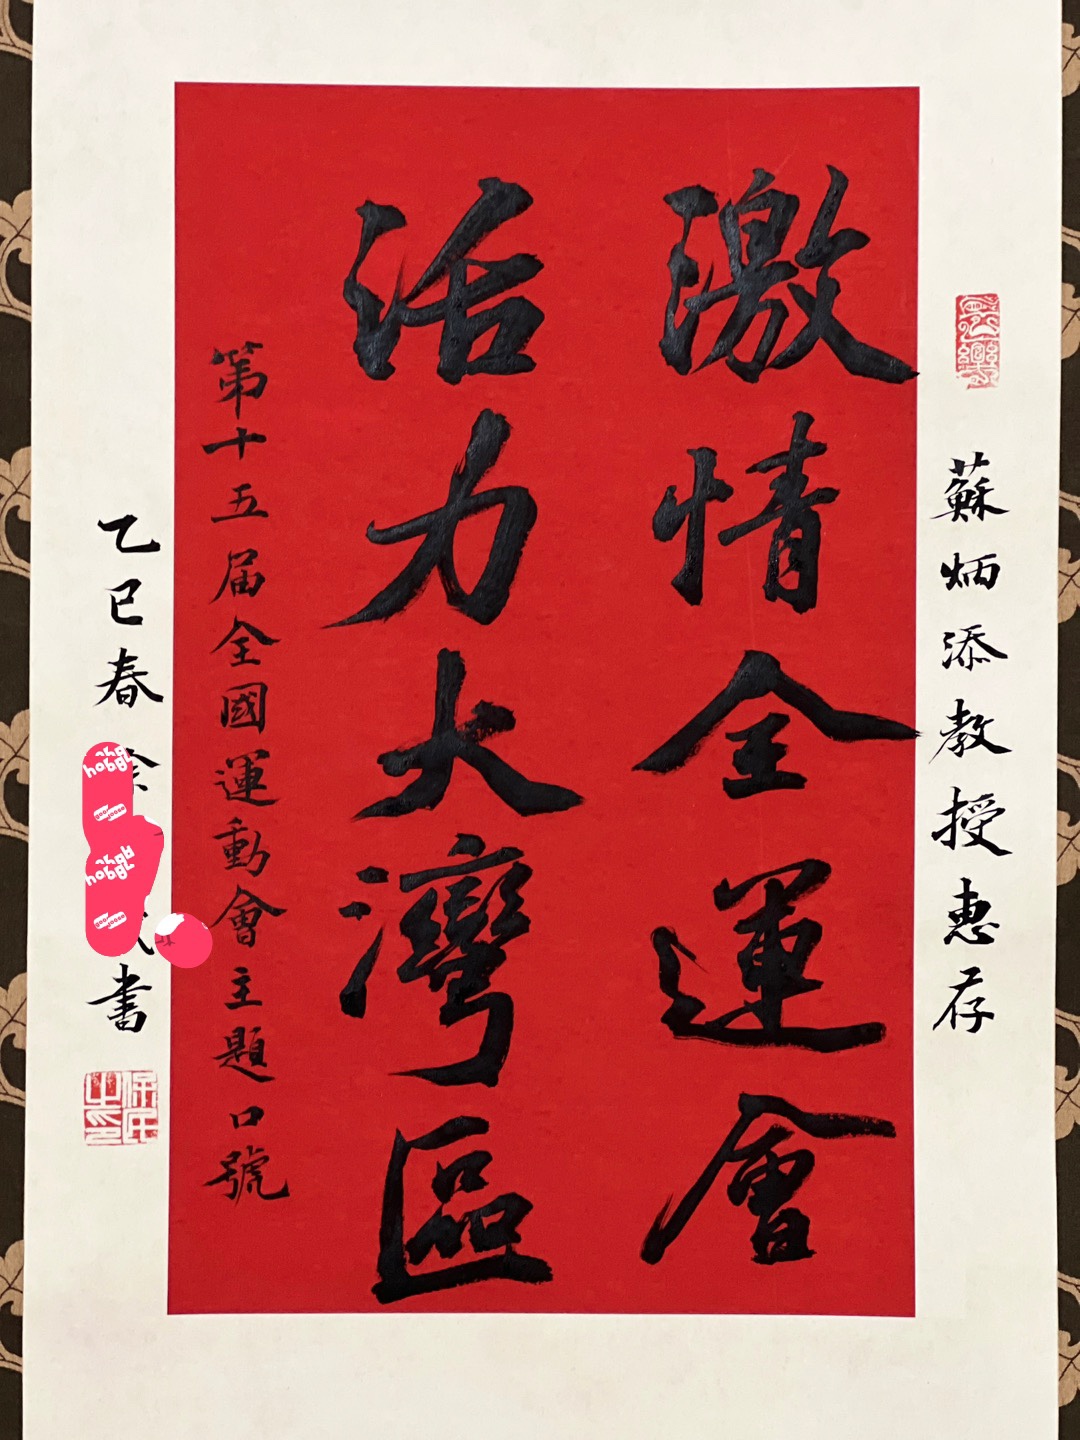 蘇炳添教授惠存
激情全運會
活力大灣區
第十五届全國運動會主題口號
乙巳春
書
保民之印